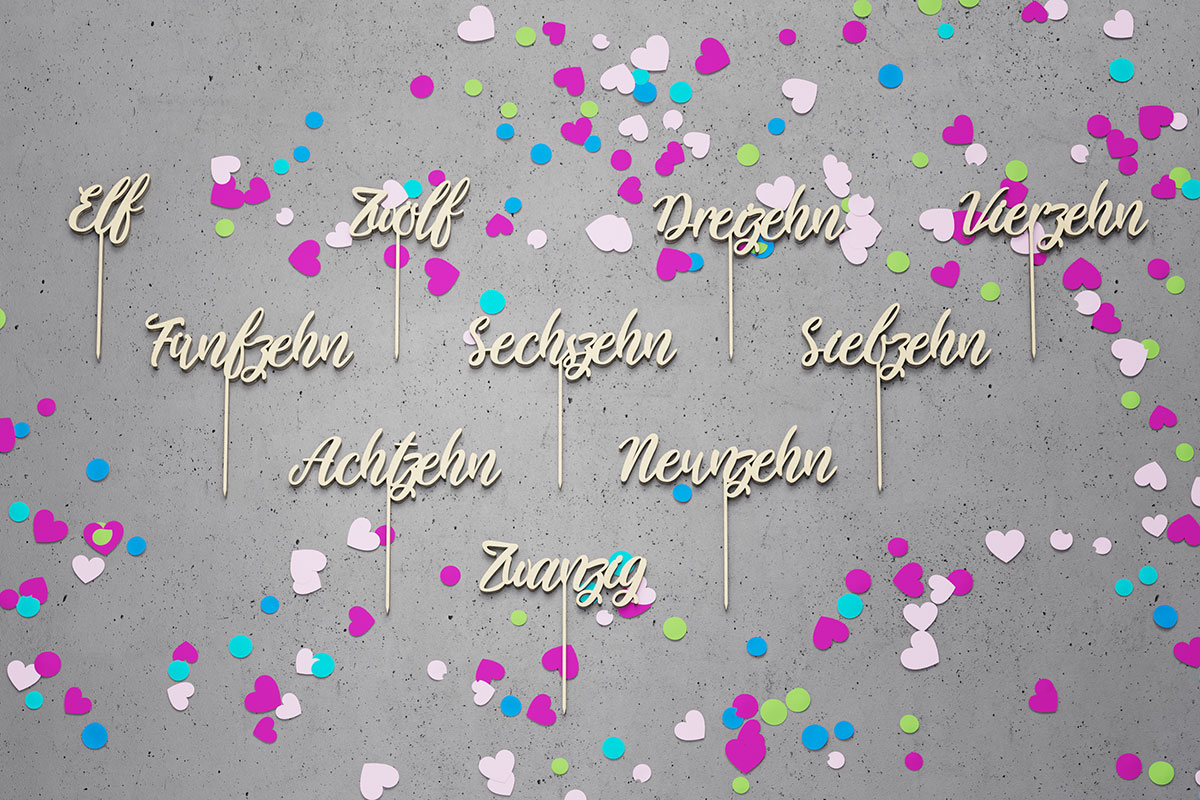 Elf Zwölf Dreizehn Vierzehn
Fünfzehn Sechszehn Siebzehn
Achtzehn Neunzehn
Zwanzig